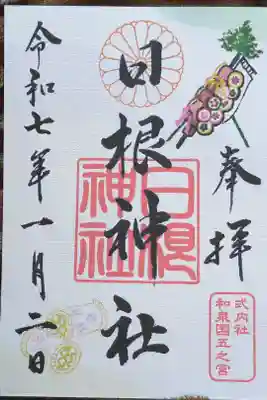 奉拝
日根神社
日根神社
令和七年一月二日
式内社
和泉国五之宮